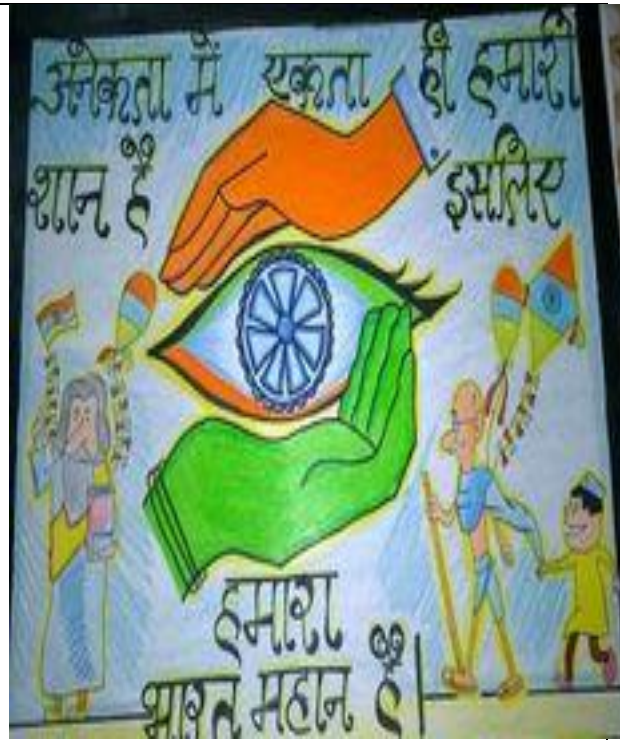 अनेकता में एकता ही हमारी
शान है इसलिए
हमारा
भारत महान हैं|